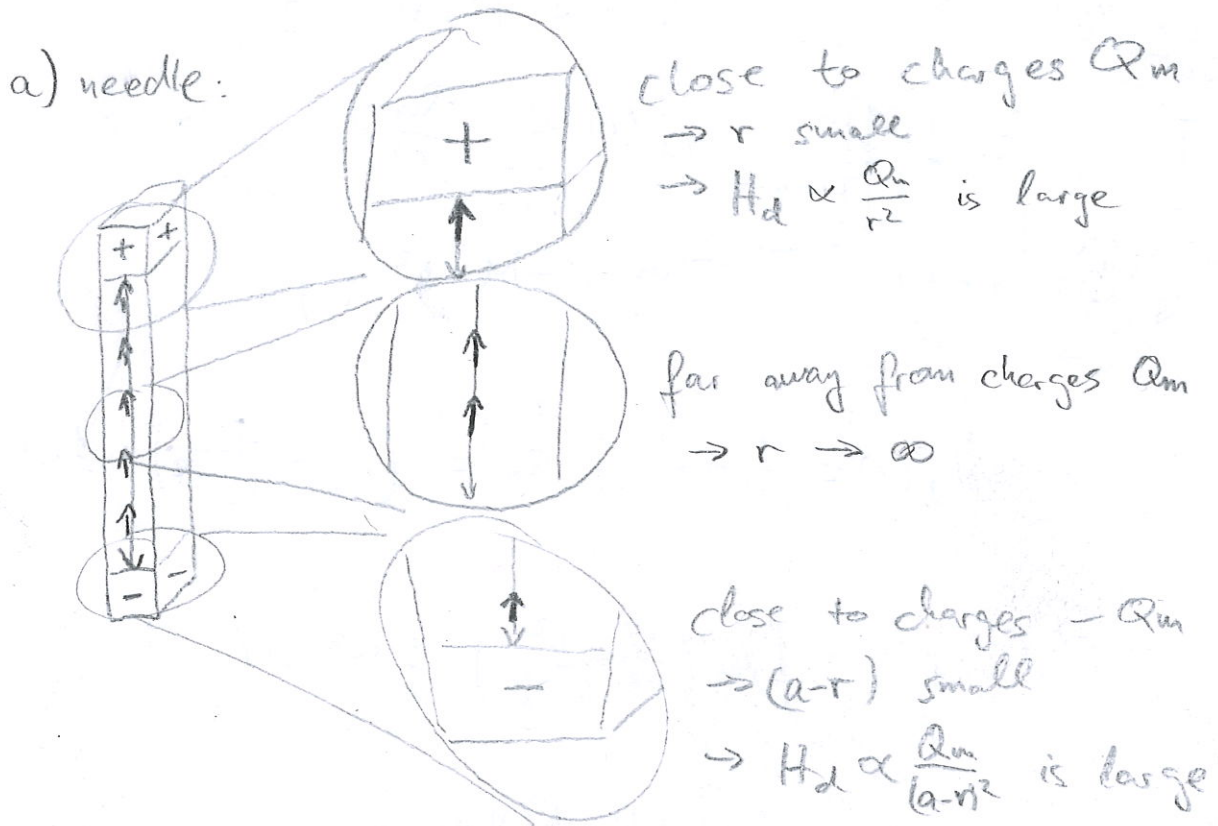 a) needle:
close to charges Qm
→ r small
→ Hd ∝ Qm/r² is large
+
+ +
far away from charges Qm
→ r → ∞
close to charges – Qm
→ (a-r) small
→ Hd ∝ Qm/(a-r)² is large
–
– –